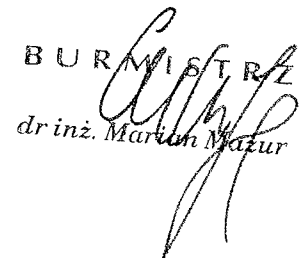 BURMISTRZ
dr inż. Marian Mazur